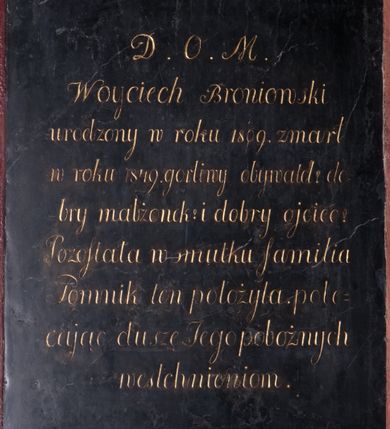 D. O. M.
Woyciech Broniowski
urodzony w roku 1809. zmarł
w roku 1849. gorliwy obywatel: do-
bry małżonek: i dobry ojciec:
Pozostała w smutku familia
Pomnik ten położyła. pole-
cając duszę Jego pobożnych
westchnieniom.